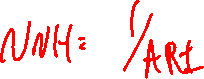 NNH = 1/ARI